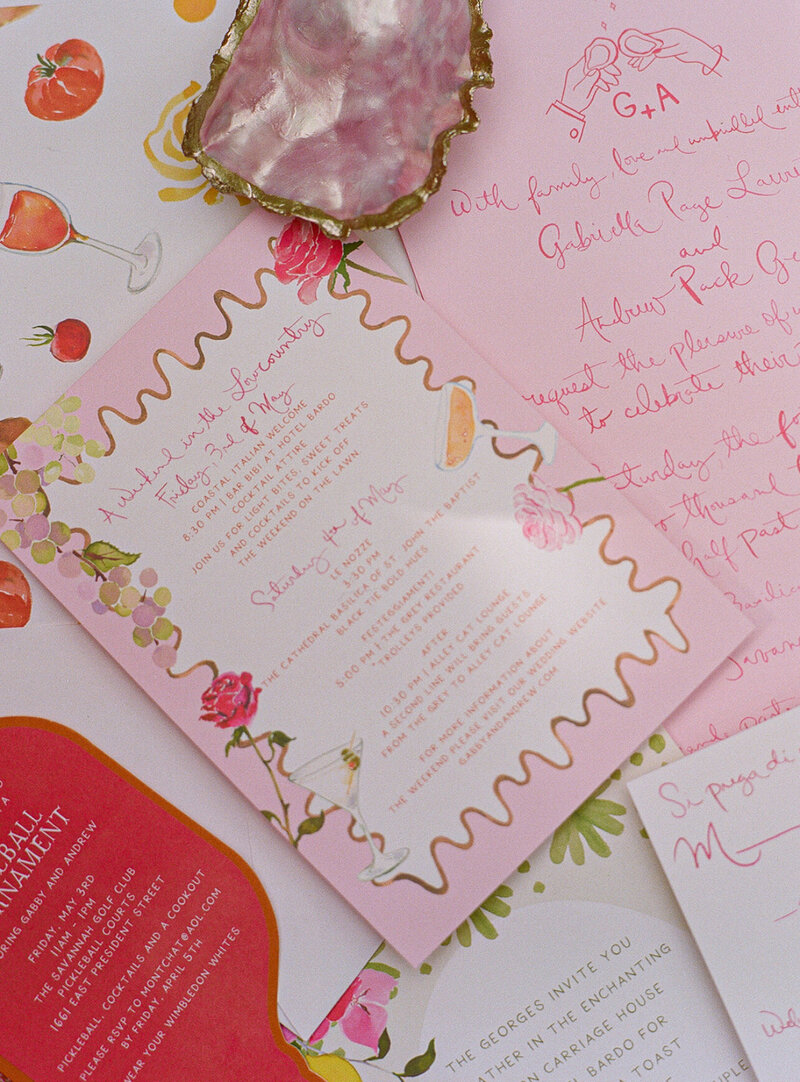 G+A
With family, love and unbridled
Gabriella Page
and
Andrew Pack
request the pleasure of
to celebrate their
the
thousand
half past
Si prega di
M
A Weekend in the Lowcountry
Friday, 3rd of May
COASTAL ITALIAN WELCOME
8:30 PM | BAR BIBI AT HOTEL BARDO
COCKTAIL ATTIRE
JOIN US FOR LIGHT BITES, SWEET TREATS
AND COCKTAILS TO KICK OFF
THE WEEKEND ON THE LAWN.
Saturday 4th of May
LE NOZZE
3:30 PM
THE CATHEDRAL BASILICA OF ST. JOHN THE BAPTIST
BLACK TIE BOLD HUES
FESTEGGIAMENTI
5:00 PM | THE GREY RESTAURANT
*TROLLEYS PROVIDED
AFTER
10:30 PM | ALLEY CAT LOUNGE
A SECOND LINE WILL BRING GUESTS
FROM THE GREY TO ALLEY CAT LOUNGE
FOR MORE INFORMATION ABOUT
THE WEEKEND PLEASE VISIT OUR WEDDING WEBSITE
GABBYANDANDREW.COM
A
GABBY AND ANDREW
FRIDAY, MAY 3RD
11AM - 1PM
THE SAVANNAH GOLF CLUB
PICKLEBALL COURTS
1661 EAST PRESIDENT STREET
PICKLEBALL, COCKTAILS AND A COOKOUT
PLEASE RSVP TO MONTCHAT@AOL.COM
BY FRIDAY, APRIL 5TH
WEAR YOUR WIMBLEDON WHITES
THE GEORGES INVITE YOU
IN THE ENCHANTING
CARRIAGE HOUSE
BARDO FOR
TOAST